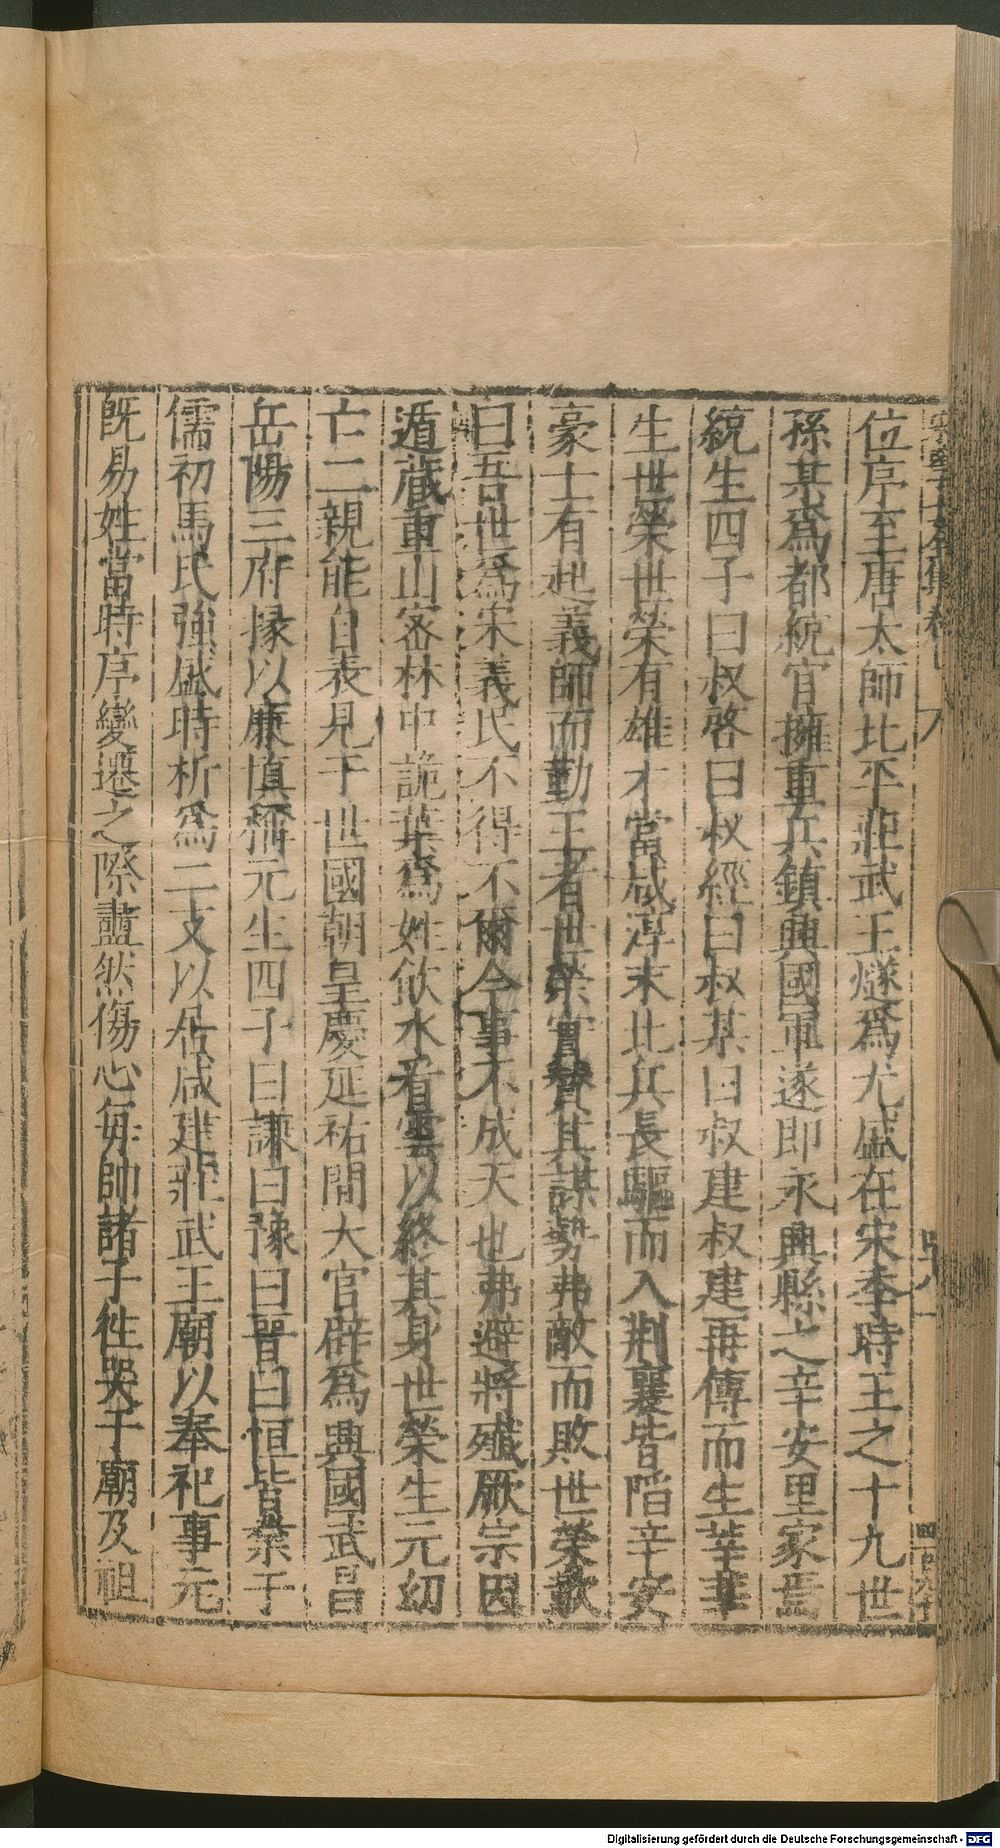 位序至唐太師北平莊武王燧爲尤盛在宋季時王之十九世
孫某爲都統官擁重兵鎮興國軍遂即永興縣之辛安里家焉
統生四子曰叔啓曰叔經曰叔某曰叔建叔建再傳而生莘莘
生世榮世榮有雄才當咸淳末北兵長驅而入荆襄皆陷辛安
豪士有起義師而勤王者世榮實賛其謀勢弗敵而敗世榮歎
曰吾世爲宋義民不得不爾今事不成天也弗避將殲厥宗因
遁藏重山密林中詭葉爲姓飲水看雲以終其身世榮生元幼
亡二親能自表見于世國朝皇慶延祐間大官辟爲興國武昌
岳陽三府掾以廉慎稱元生四子曰謙曰豫曰晋曰恒皆業于
儒初馬氏強盛時析爲二支以居咸建莊武王廟以奉祀事元
既易姓當時序變遷之際衋然傷心每帥諸子往哭于廟及祖
Digitalisierung gefördert durch die Deutsche Forschungsgemeinschaft - DFG